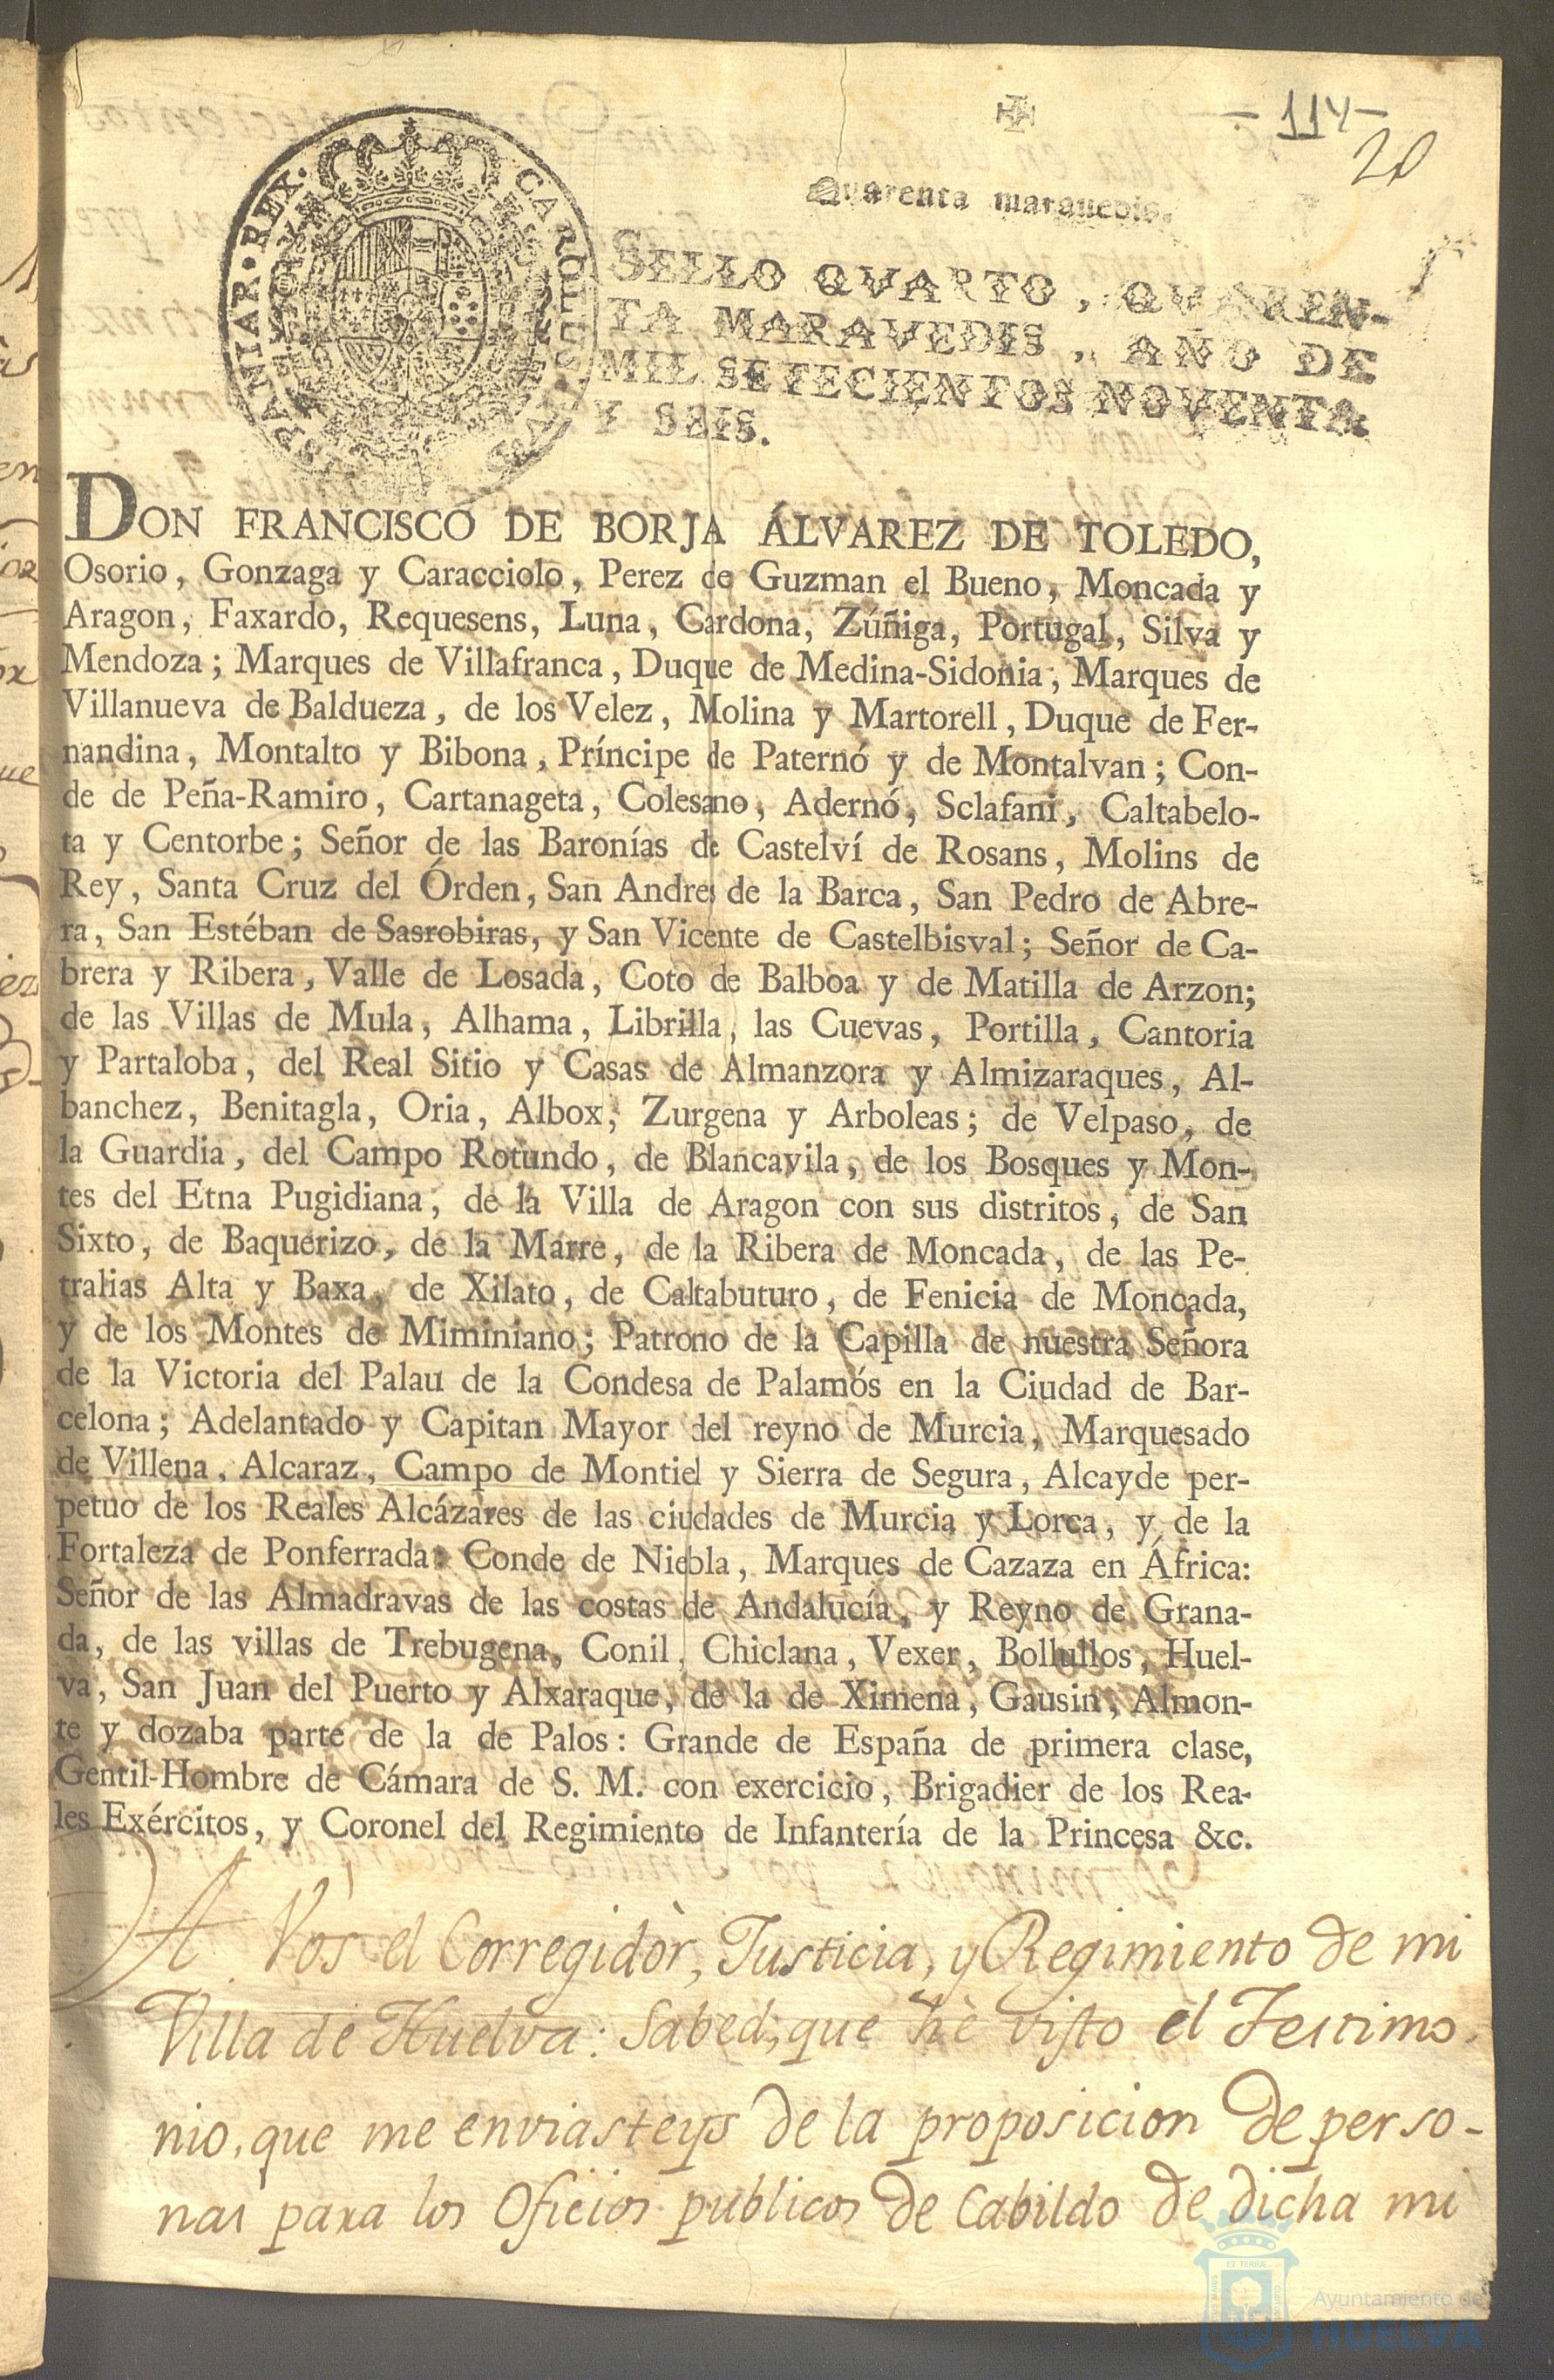 -114-
20
Quarenta maravedis.
CAROLUS IV D G HISPANIAR. REX.
SELLO QVARTO, QVAREN-
TA MARAVEDIS, AÑO DE
MIL SETECIENTOS NOVENTA
Y SEIS.
DON FRANCISCO DE BORJA ÁLVAREZ DE TOLEDO,
Osorio, Gonzaga y Caracciolo, Perez de Guzman el Bueno, Moncada y
Aragon, Faxardo, Requesens, Luna, Cardona, Zúñiga, Portugal, Silva y
Mendoza; Marques de Villafranca, Duque de Medina-Sidonia; Marques de
Villanueva de Baldueza, de los Velez, Molina y Martorell, Duque de Fer-
nandina, Montalto y Bibona, Príncipe de Paternó y de Montalvan; Con-
de de Peña-Ramiro, Cartanageta, Colesano, Adernó, Sclafani, Caltabelo-
ta y Centorbe; Señor de las Baronías de Castelví de Rosans, Molins de
Rey, Santa Cruz del Órden, San Andres de la Barca, San Pedro de Abre-
ra, San Estéban de Sasrobiras, y San Vicente de Castelbisval; Señor de Ca-
brera y Ribera, Valle de Losada, Coto de Balboa y de Matilla de Arzon;
de las Villas de Mula, Alhama, Librilla, las Cuevas, Portilla, Cantoria
y Partaloba, del Real Sitio y Casas de Almanzora y Almizaraques, Al-
banchez, Benitagla, Oria, Albox, Zurgena y Arboleas; de Velpaso, de
la Guardia, del Campo Rotundo, de Blancavila, de los Bosques y Mon-
tes del Etna Pugidiana, de la Villa de Aragon con sus distritos, de San
Sixto, de Baquerizo, de la Marre, de la Ribera de Moncada, de las Pe-
tralias Alta y Baxa, de Xilato, de Caltabuturo, de Fenicia de Moncada,
y de los Montes de Miminiano; Patrono de la Capilla de nuestra Señora
de la Victoria del Palau de la Condesa de Palamós en la Ciudad de Bar-
celona; Adelantado y Capitan Mayor del reyno de Murcia, Marquesado
de Villena, Alcaraz, Campo de Montiel y Sierra de Segura, Alcayde per-
petuo de los Reales Alcázares de las ciudades de Murcia y Lorca, y de la
Fortaleza de Ponferrada: Conde de Niebla, Marques de Cazaza en África:
Señor de las Almadravas de las costas de Andalucía, y Reyno de Grana-
da, de las villas de Trebugena, Conil, Chiclana, Vexer, Bollullos, Huel-
va, San Juan del Puerto y Alxaraque, de la de Ximena, Gausin, Almon-
te y dozaba parte de la de Palos: Grande de España de primera clase,
Gentil-Hombre de Cámara de S. M. con exercicio, Brigadier de los Rea-
les Exércitos, y Coronel del Regimiento de Infantería de la Princesa &c.
A Vos el Corregidòr, Justicia, y Regimiento de mi
Villa de Huelva: Sabed, que hè visto el Testimo-
nio, que me enviasteys de la proposicion de perso-
nas para los Oficios publicos de Cabildo de dicha mi
Ayuntamiento de
HUELVA